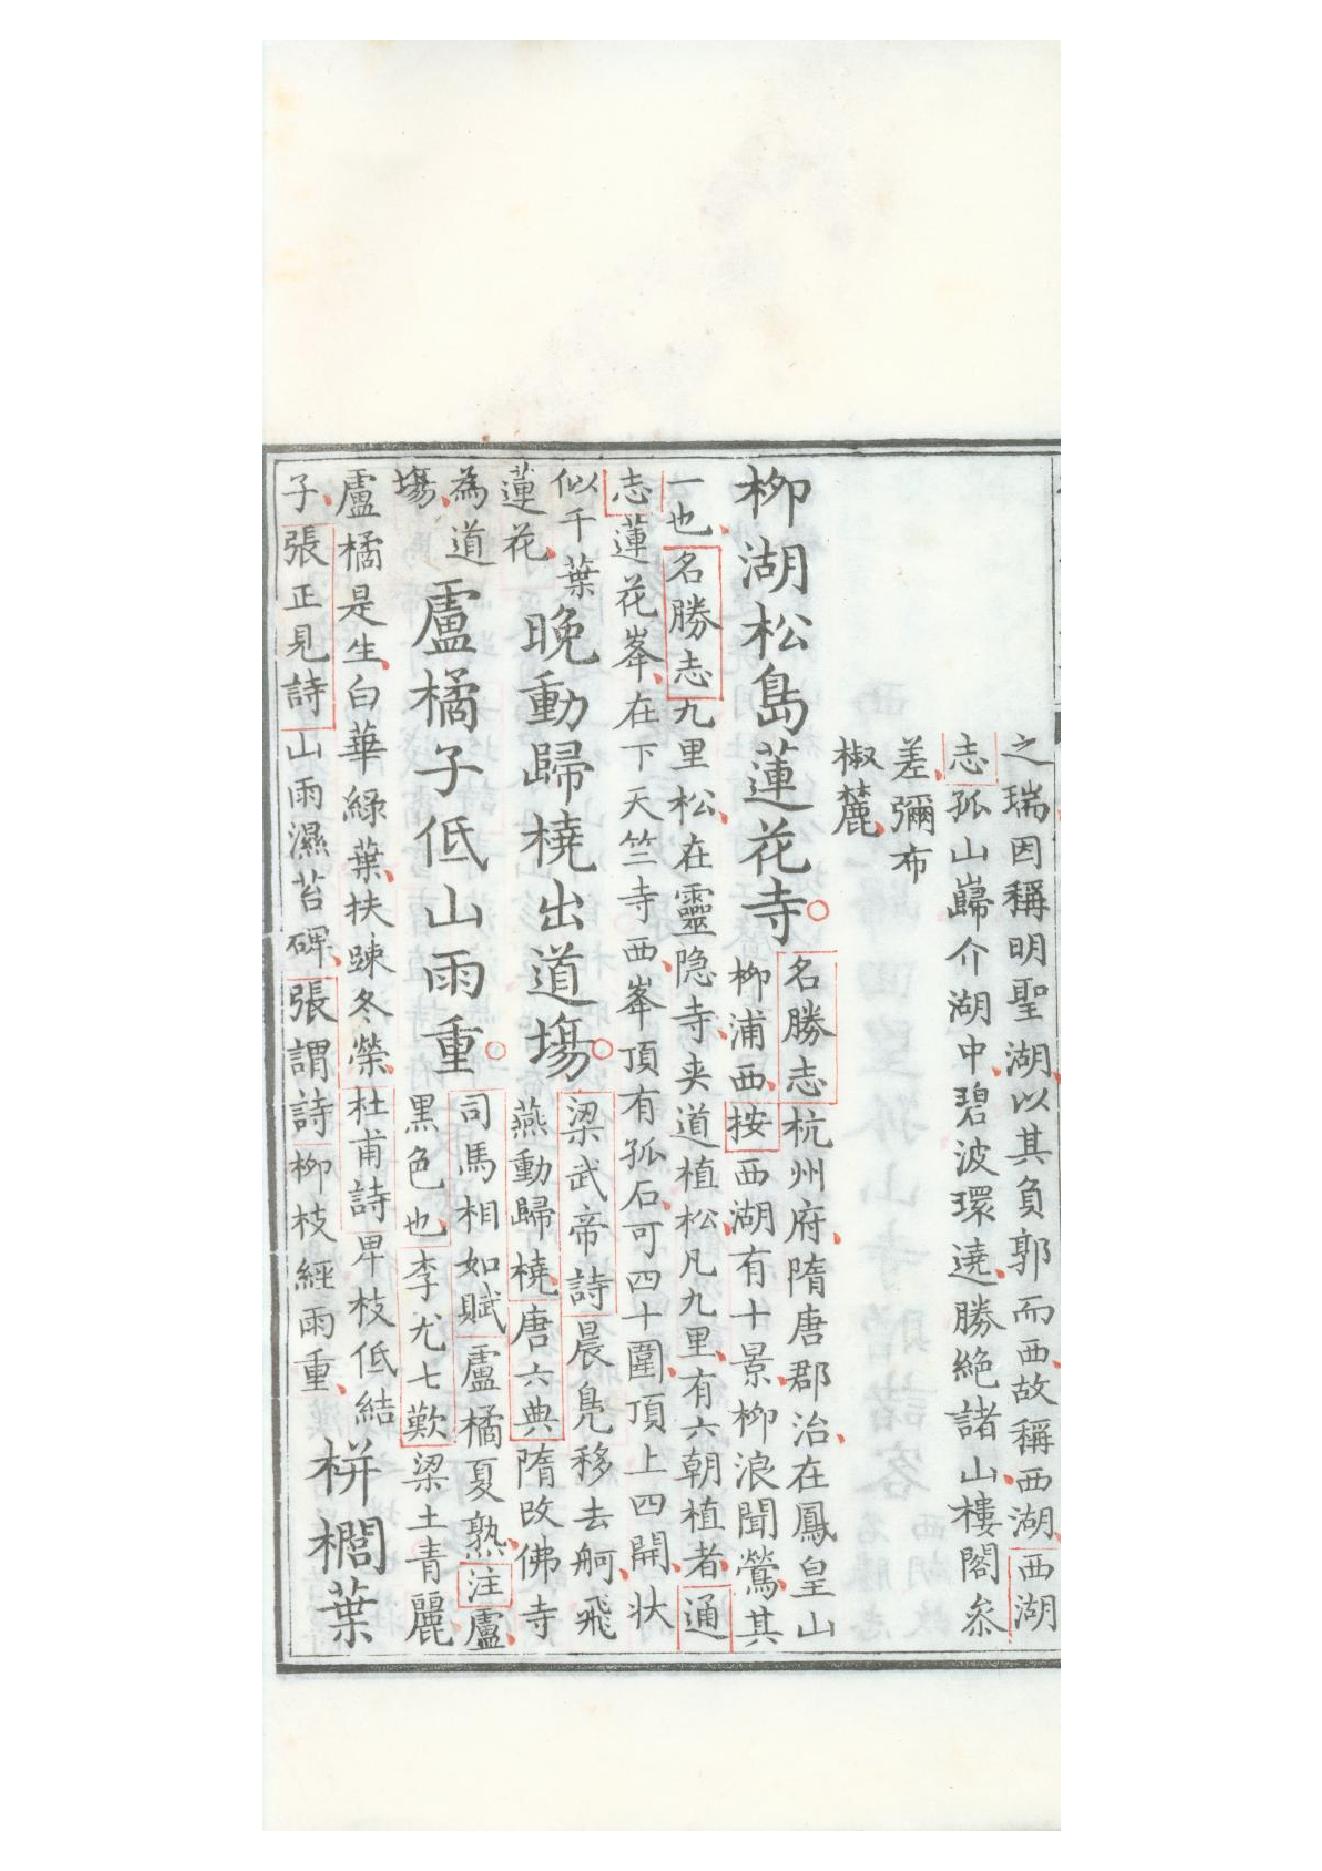 之瑞因稱明聖湖以其負郭而西故稱西湖西湖
志孤山巋介湖中碧波環遶勝絶諸山樓閣叅
差彌布
椒麓
柳湖松島蓮花寺
名勝志杭州府隋唐郡治在鳳皇山
柳浦西按西湖有十景柳浪聞鶯其
一也名勝志九里松在靈隐寺夹道植松凡九里有六朝植者通
志蓮花峯在下天竺寺西峯頂有孤石可四十圍頂上四開状
似千葉
蓮花
晚動歸橈出道塲
梁武帝詩晨鳧移去舸飛
燕動歸橈唐六典隋改佛寺
為道
塲
盧橘子低山雨重
司馬相如賦盧橘夏熟注盧
黒色也李尤七歎梁土青麗
盧橘是生白華緑葉扶踈冬榮杜甫詩卑枝低結
子張正見詩山雨濕苔碑張謂詩柳枝經雨重
栟櫚葉